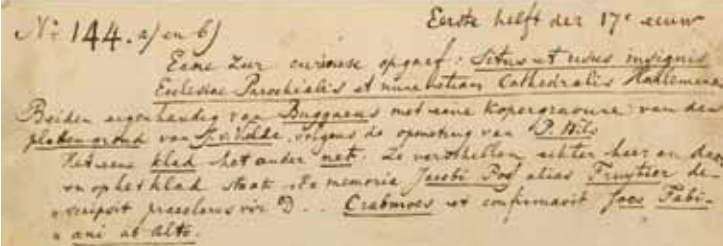 Eerste helft der 17e eeuw
No: 144. a) en b)
Eene zeer curieuse opgaef: Situs et usus insignis
Ecclesiae Parochialis et nunc etiam Cathedralis Haarlemensis
Beiden eigenhandig van met eene kopergravure van den
platten grond van volgens de opmeting van P. Wils
Het eene klad het ander net. Ze verschillen echter heer en daar
en op het klad staat "Ex memoria Jacobi alias Fruytier de-
"scripsit praeclarus vir D... Crabmoes et confirmavit Joes Fabi-
"ani ab alto.